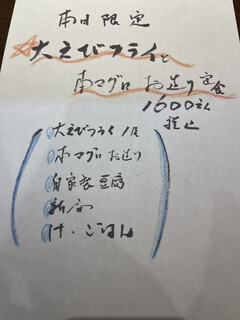 本日限定
大えびフライと
本マグロお造り定食
1600えん
税込
大えびフライ1尾
本マグロお造り
自家製豆腐
新香
汁・ごはん